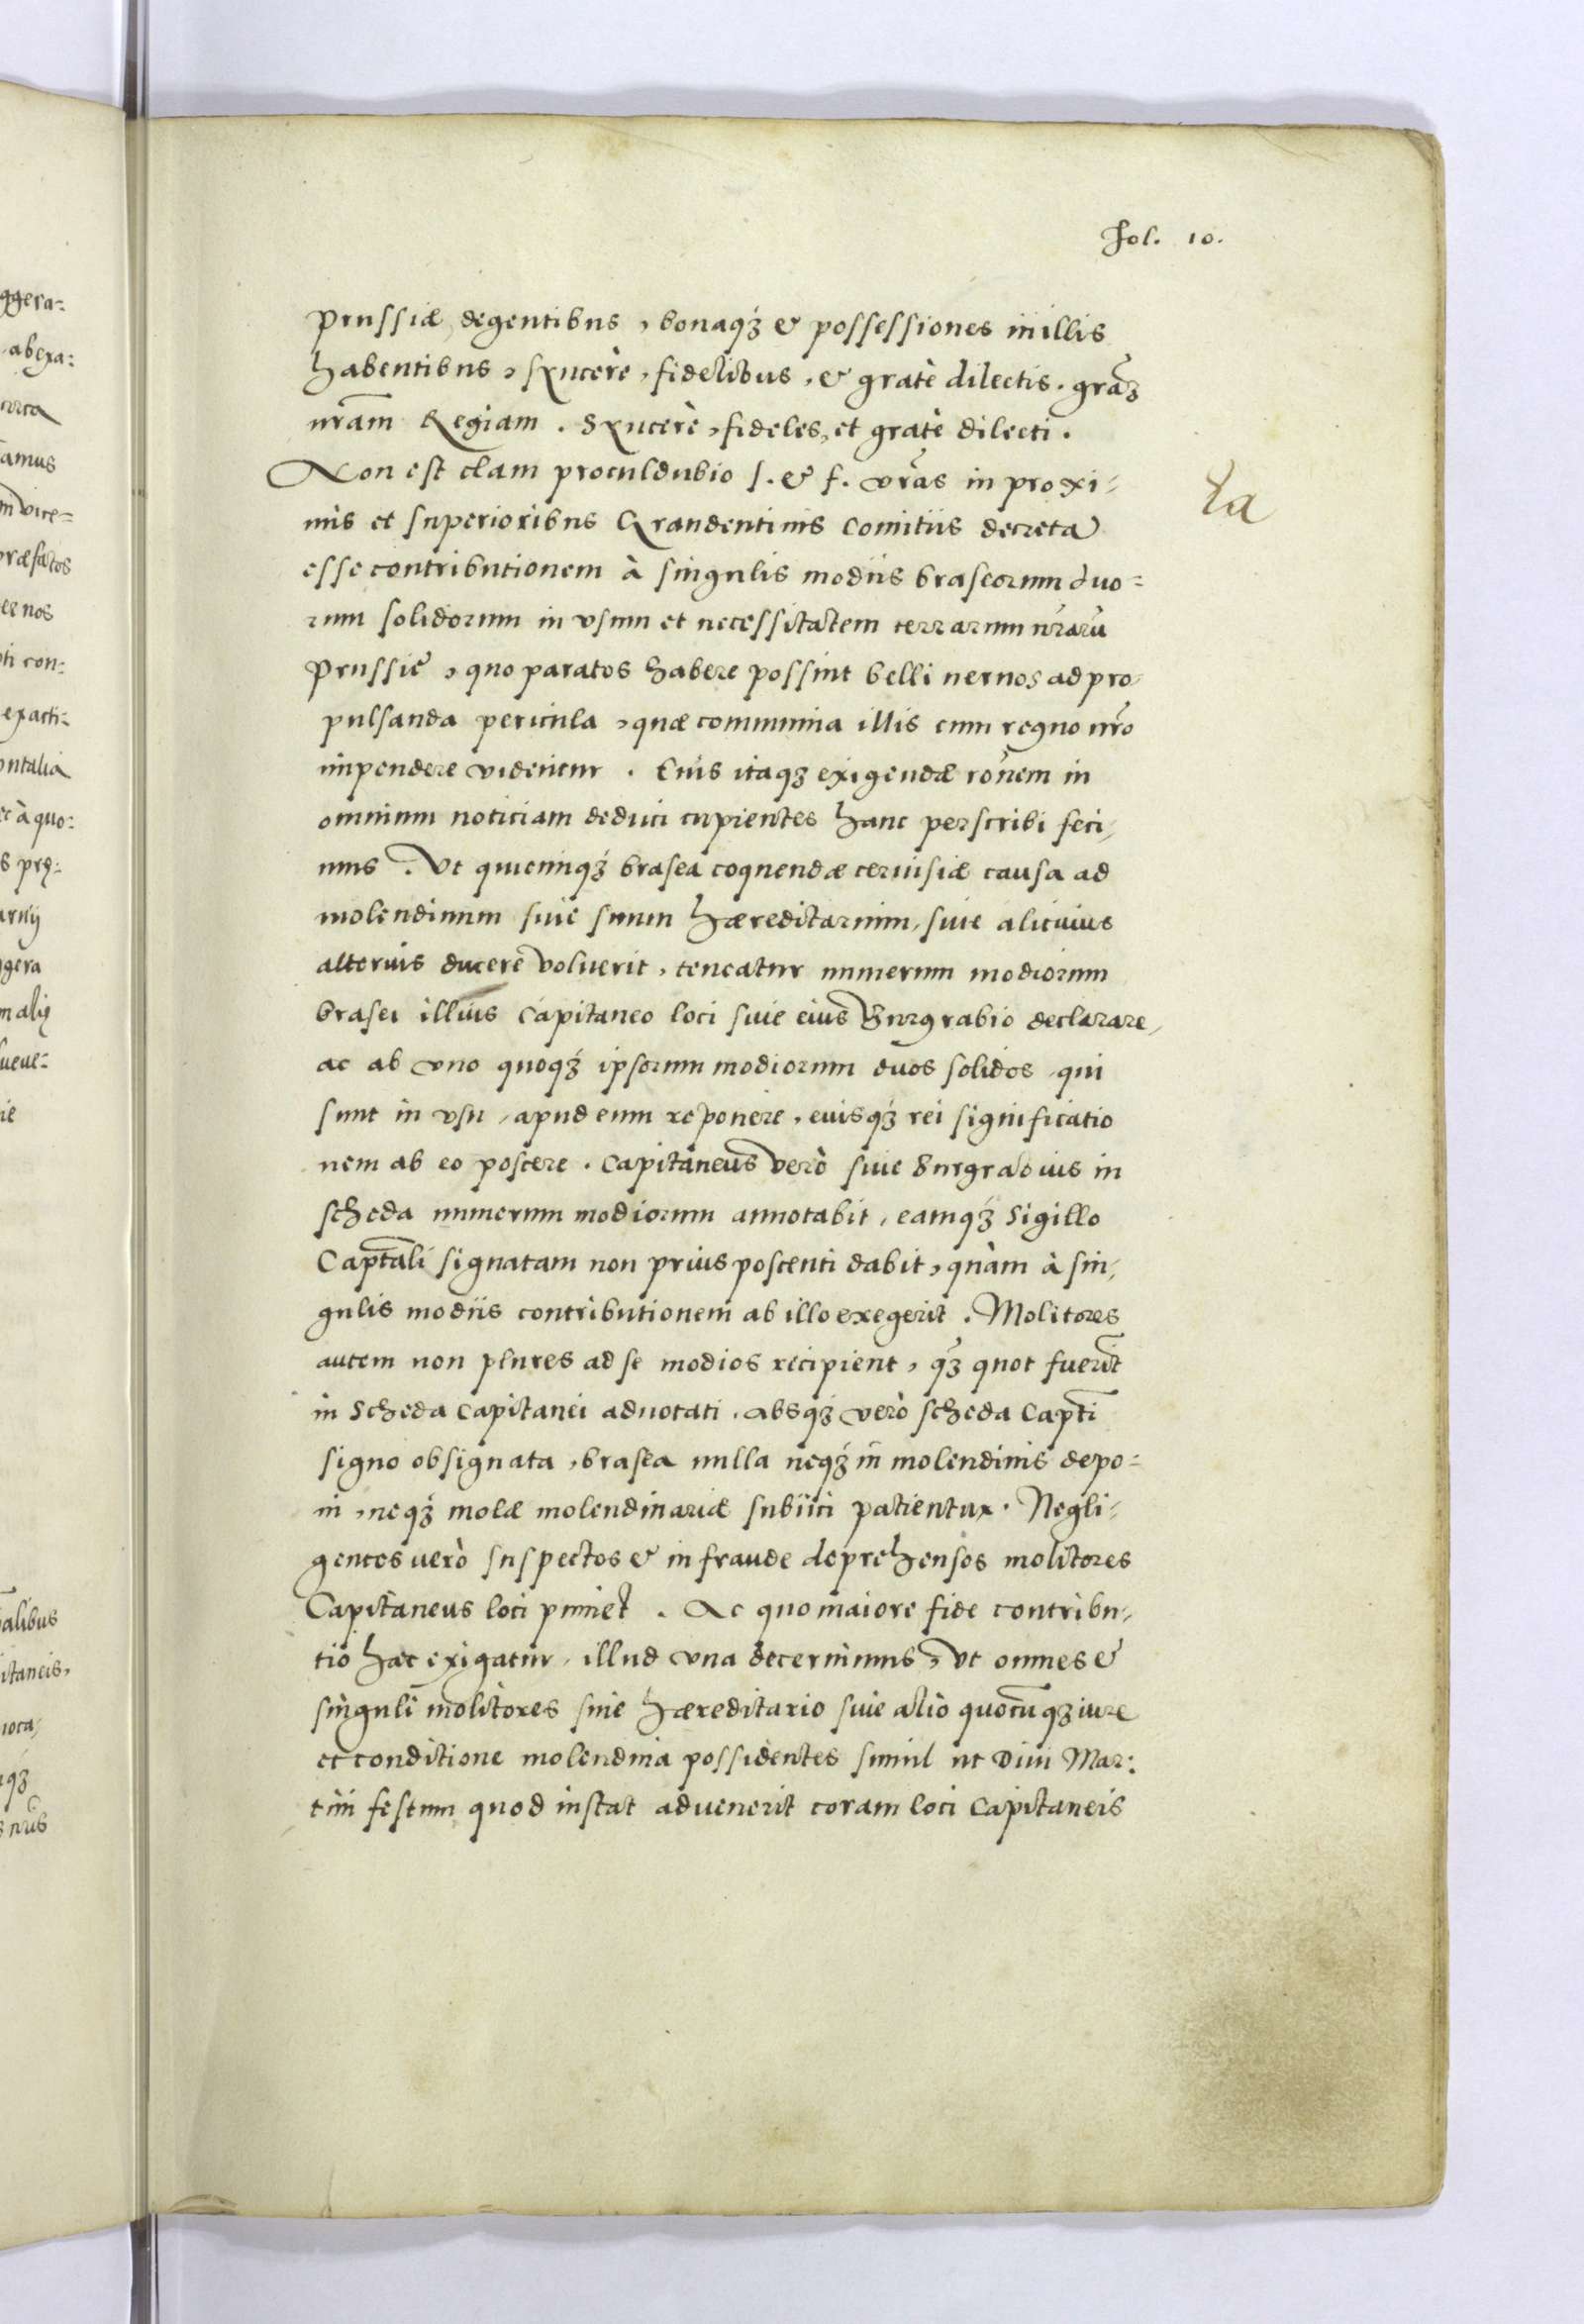 Fol. 10.
Prussiæ, degentibus, bonaqꝫ & possessiones in illis
habentibus, syncerè, fidelibus, & gratè dilectis. gra͞ꝫ
nr͞am Regiam. Syncerè, fideles, et gratè dilecti.
Non est clam proculdubio s. & f. vr͞as in proxi-
mis et superioribus Graudentinis comitiis decreta
esse contributionem à singulis modiis braseorum duo-
rum solidorum in vsum et necessitatem terrarum nr͞arū
Prussię, quo paratos habere possint belli neruos ad pro-
pulsanda pericula, quæ communia illis cum regno nr͞o
impendere videntur. Cuius itaqꝫ exigendæ ro͞nem in
omnium noticiam deduci cupientes hanc perscribi feci-
mus. Vt quicunqꝫ brasea coquendæ ceruisiæ causa ad
molendinum siue suum hæreditarium, siue alicuius
alterius ducere voluerit, teneatur numerum modiorum
brasei illius capitaneo loci siue eius Burgrabio declarare,
ac ab vno quoqꝫ ipsorum modiorum duos solidos, qui
sunt in vsu, apud eum reponere, cuiusqꝫ rei significatio
nem ab eo poscere. Capitaneus verò siue Burgrabius in
scheda numerum modiorum annotabit, eamqꝫ sigillo
Capta͞li signatam non prius poscenti dabit, quàm à sin-
gulis modiis contributionem ab illo exegerit. Molitores
autem non plures ad se modios recipient, qꝫ quot fueri͞t
in scheda capitanei adnotati. absqꝫ verò scheda Capt͞i
signo obsignata, brasea nulla neqꝫ in molendinis depo-
ni, neqꝫ molæ molendinariæ subiici patientur. Negli-
gentes verò suspectos & in fraude deprehensos molitores
Capitaneus loci puniet. Ac quo maiore fide contribu-
tio hæc exigatur, illud vna decernimus, vt omnes &
singuli molitores siue hæreditario siue alio quocūqꝫ iure
et conditione molendina possidentes simul ut Diui Mar-
tini festum quod instat aduenerit coram loci Capitaneis
ła
ggera-
abexa-
amus
m vice-
præfatos
ee nos
oti con-
exacti-
ontalia
c à quo-
s prę-
gera
ueue-
ie
alibus
itaneis,
iora,
qꝫ